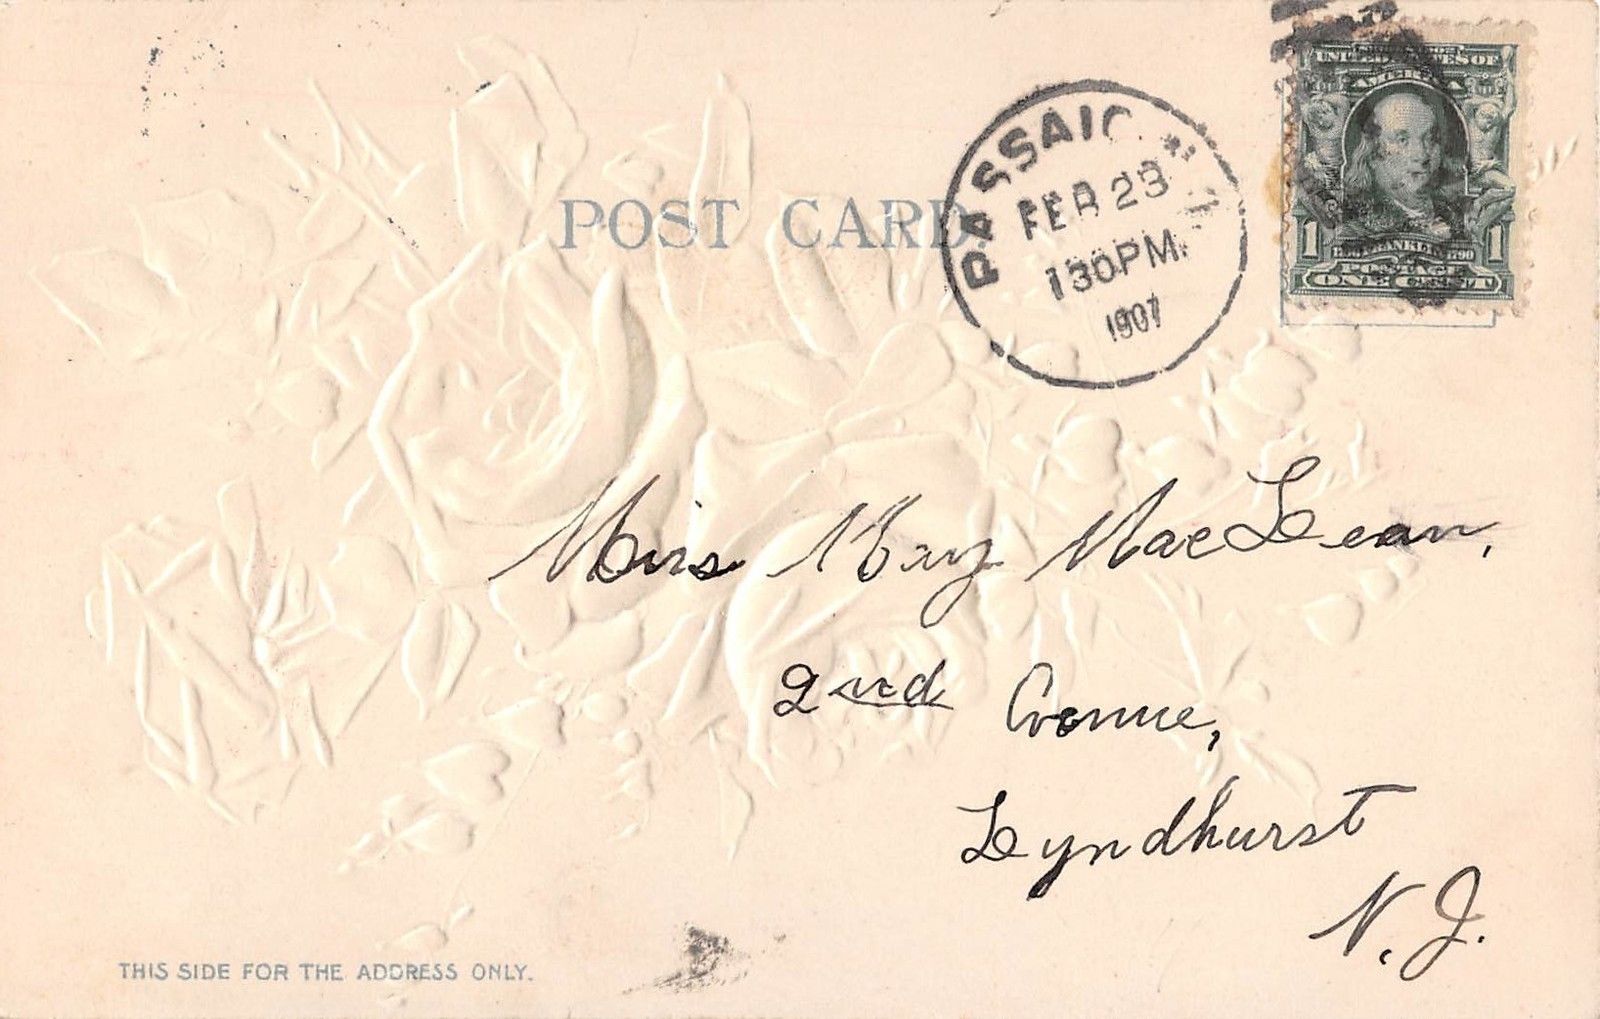 POST CARD
PASSAIC N.J.
FEB 23
130PM
1907
UNITED STATES OF
AMERICA
1 FRANKLIN 1790 1
POSTAGE
ONE CENT
Miss May MacLean,
2nd Avenue,
Lyndhurst
N.J.
THIS SIDE FOR THE ADDRESS ONLY.